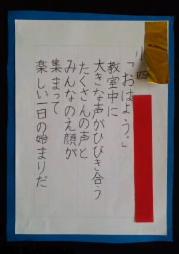 「おはよう。」
教室中に
大きな声がひびき合う
たくさんの声と
みんなのえ顔が
集まって
楽しい一日の始まりだ